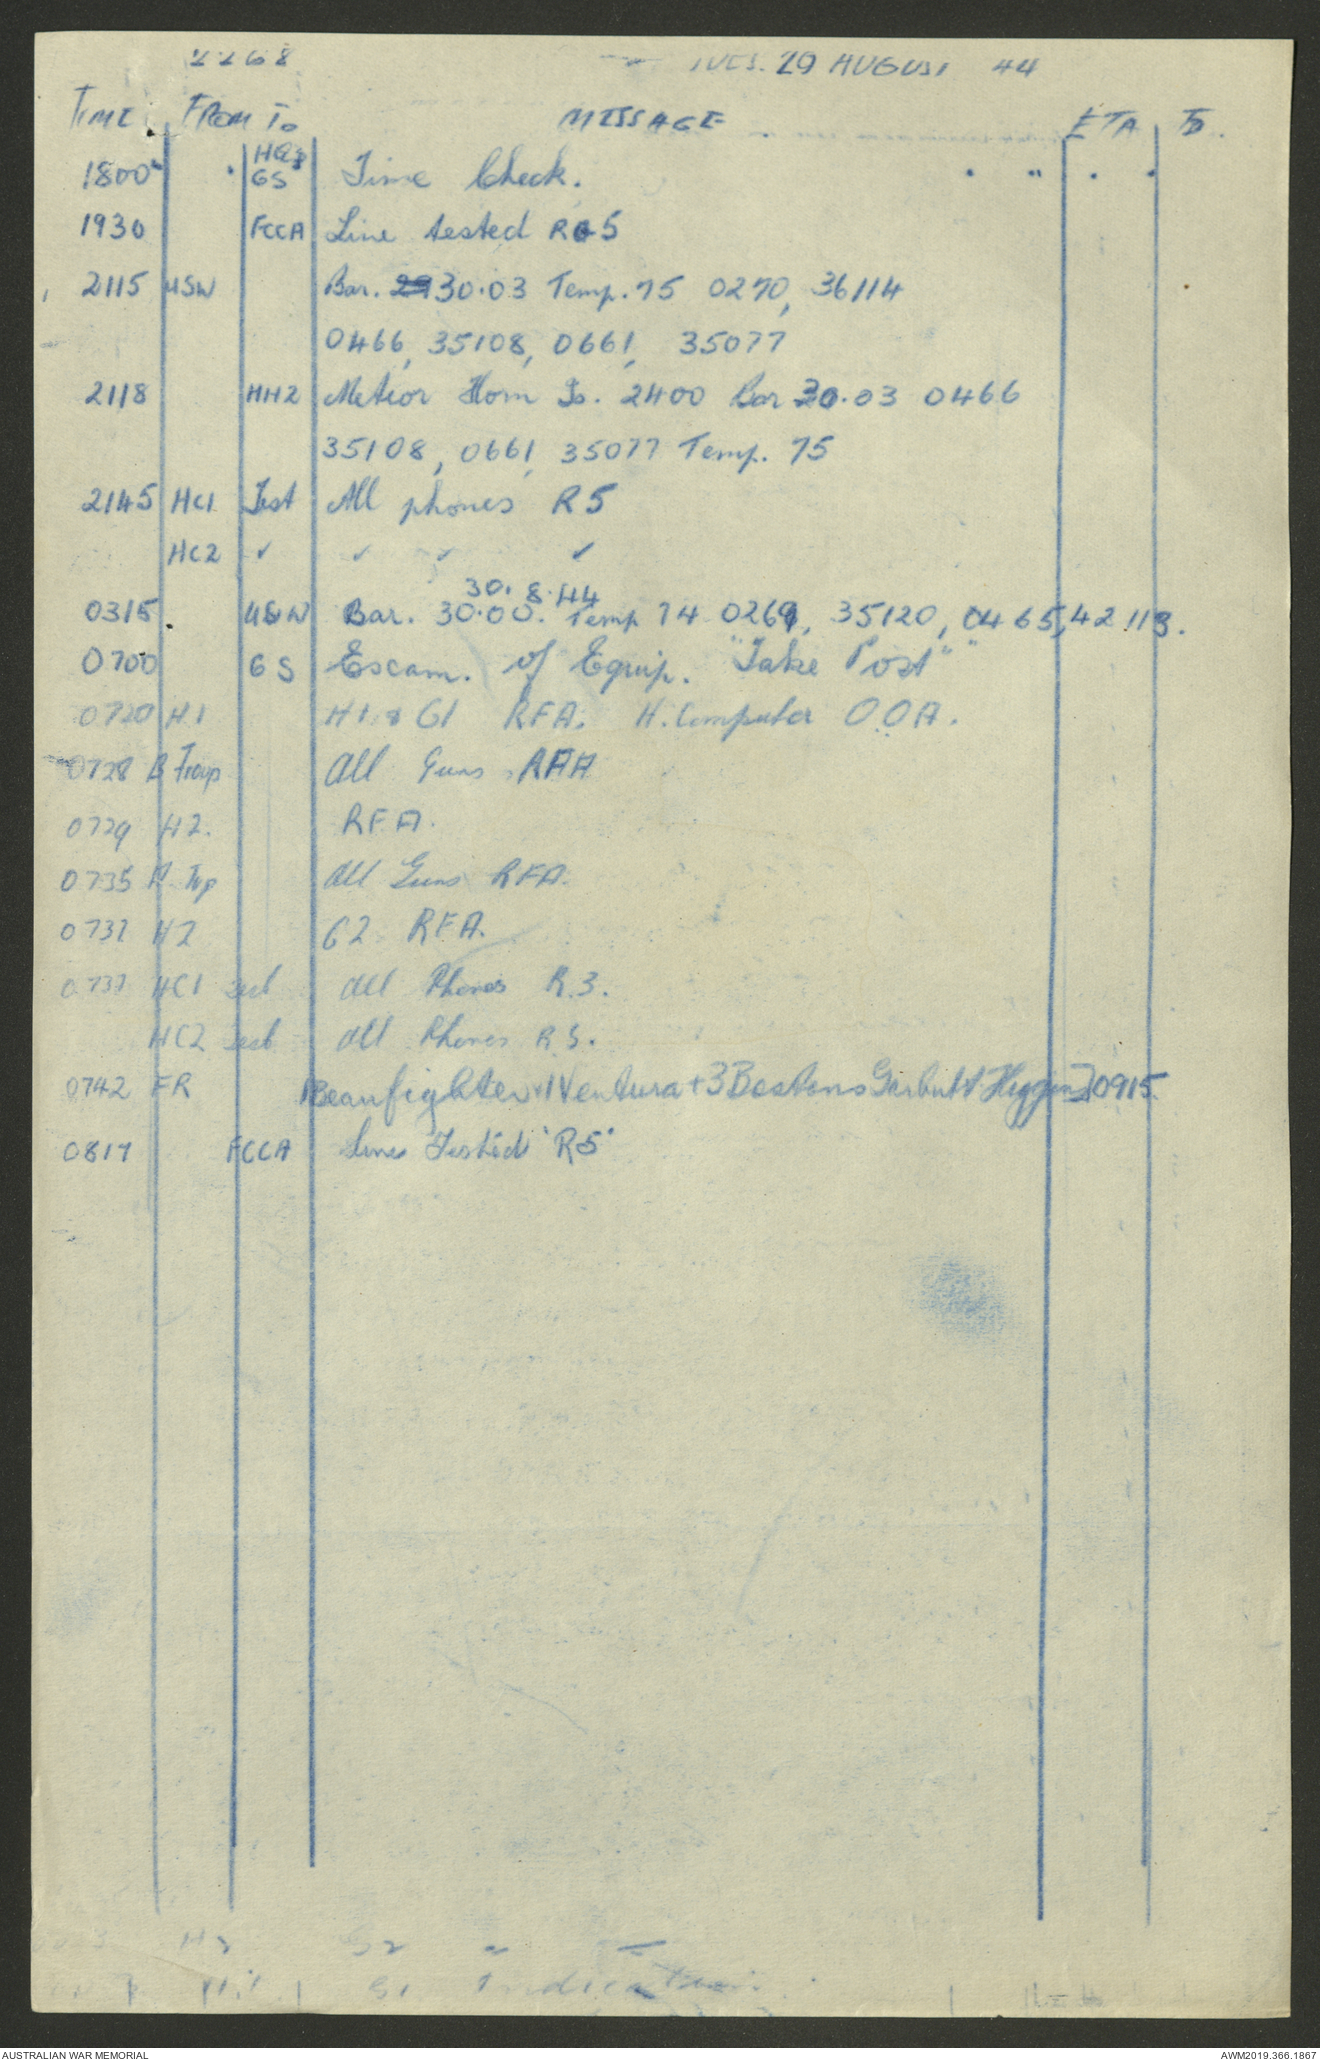 2268 TUES. 29 AUGUST 44
TIME FROM TO MESSAGE ETA TD.
1800 HQ8 GS Time Check.
1930 FCCA Line tested R5
2115 USW Bar. 29 30.03 Temp. 75 0270, 36114
0466, 35108, 0661, 35077
2118 HH2 Meteor Horn Is. 2400 Bar 30.03 0466
35108, 0661, 35077 Temp. 75
2145 HC1 Test All phones R5
HC2 ✓ ✓ ✓ ✓
30.8.44
0315 USW Bar. 30.00. Temp 74 0269, 35120, 0465, 42113.
0700 GS Exam. of Equip. "Take Post"
0720 H1 H1 & G1 RFA. H. Computer OOA.
0728 B Troop All Guns RAA
0729 H2. RFA.
0735 A. Trp All Guns RFA.
0737 H2 G2 RFA.
0737 HC1 Test All Phones R.3.
HC2 Test All Phones R5.
0742 FR 1Beaufighter+1Ventura+3Bostons Garbutt Higgins] 0915
0817 FCCA Line Tested "R5"
AUSTRALIAN WAR MEMORIAL AWM2019.366.1867